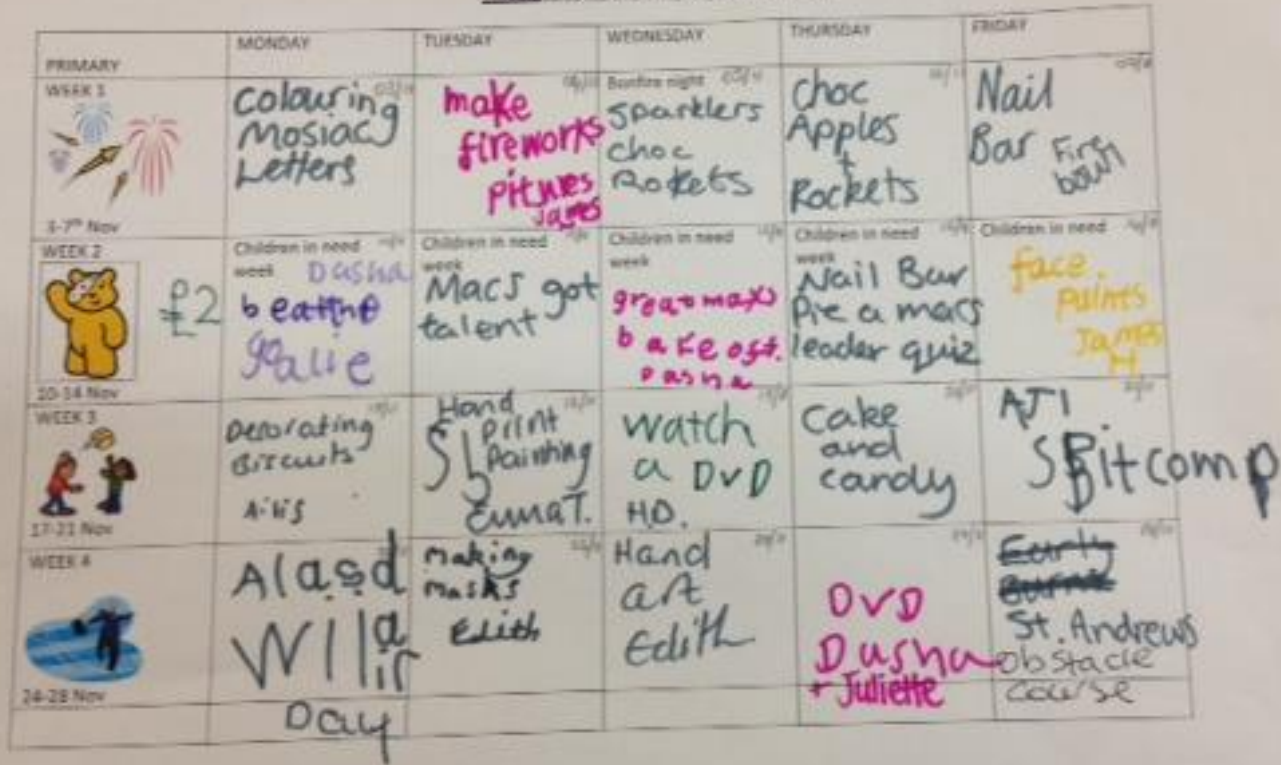 MONDAY
TUESDAY
WEDNESDAY
THURSDAY
FRIDAY
PRIMARY
WEEK 1
3-7th Nov
colouring
Mosiac
Letters
make
fireworks
pitures
James
Bonfire night
Sparklers
choc
Rokets
choc
Apples
+
Rockets
Nail
Bar
Fire
WEEK 2
£2
10-14 Nov
Children in need
week
Dasha
Children in need
week
Macs got
talent
Children in need
week
great macs
bake off.
Dasha
Children in need
week
Nail Bar
Pie a macs
leader quiz
Children in need
face
paints
James
H
WEEK 3
17-21 Nov
Decorating
Biscuits
Ailis
Hand
Print
Painting
Emma T.
watch
a DVD
H.D.
Cake
and
candy
WEEK 4
24-28 Nov
Day
making
masks
Edith
Hand
art
Edith
DVD
Dasha
+ Juliette
St. Andrews
obstacle
course